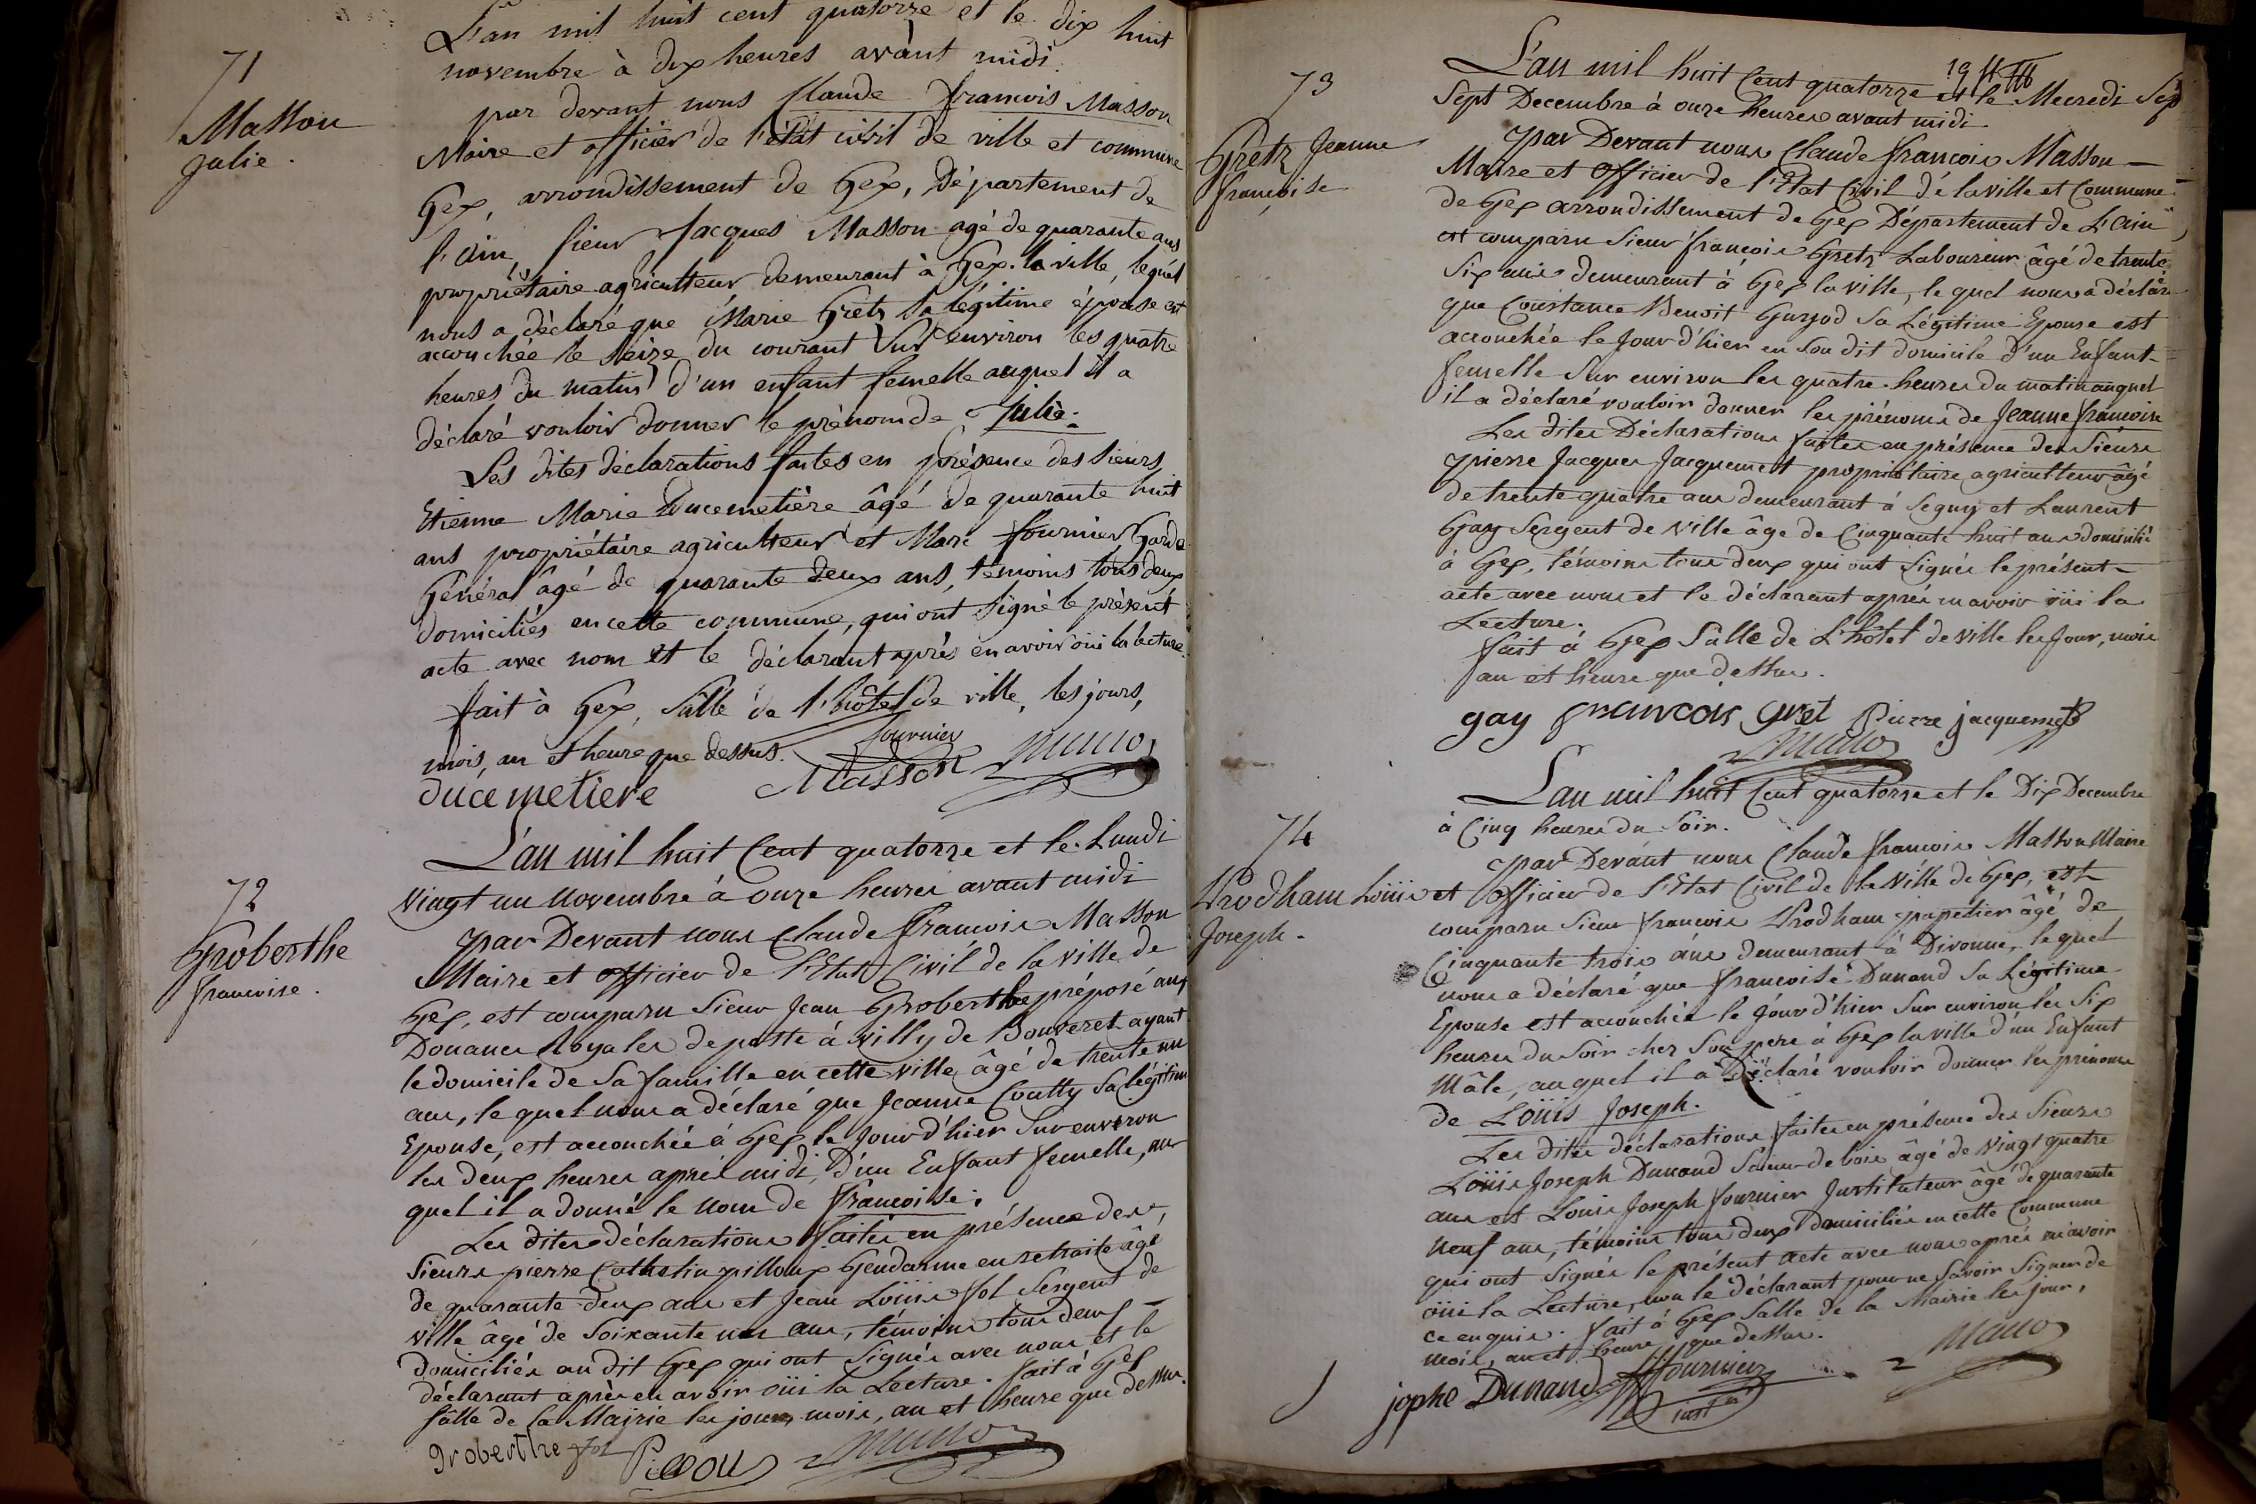 71
Masson
Julie.
L'an mil huit cent quatorze et le dix huit
novembre à dix heures avant midi.
par devant nous Claude françois Masson
Maire et officier de l'état civil de ville et commune
Gex, arrondissement de Gex, Département de
l'ain, sieur Jacques Masson agé de quarante ans
propriétaire agriculteur demeurant à Gex la ville, lequel
nous a déclaré que Marie Gretz sa légitime épouse est
accouchée le seize du courant sur environ les quatre
heures du matin d'un enfant femelle auquel il a
déclaré vouloir donner le prénom de Julie.
Les dites déclarations faites en présence des sieurs
Etienne Marie Ducemetière âgé de quarante huit
ans propriétaire agriculteur et Marc fournier Garde
Général âgé de quarante deux ans, témoins tous deux
domiciliés en cette commune, qui ont signé le présent
acte avec nous et le déclarant après en avoir oüi la lecture.
fait à Gex, Salle de l'hôtel de ville, les jours,
mois, an et heure que dessus.
fournier
ducemetiere Masson
72
Groberthe
francoise.
L'an mil huit Cent quatorze et le Lundi
vingt un Novembre à onze heures avant midi
par Devant nous Claude francois Masson
Maire et officier de l'Etat Civil de la ville de
Gex, est comparu Sieur Jean Groberthe préposé aux
Douanes Royales de poste à villy de Bouveret ayant
le domicile de Sa famille en cette ville âgé de trente un
ans, le quel nous a déclaré que Jeanne Coutty Sa légitime
Epouse, est accouchée à Gex le Jour d'hier Sur environ
les deux heures après midi, d'un Enfant femelle, au
quel il a donné le nom de francoise.
Les dites déclarations faites en présence des
Sieurs pierre pilloux Gendarme en retraite âgé
de quarante deux ans et Jean Loüis fol Sergent de
ville âgé de Soixante un ans, témoins tous deux
domiciliés au dit Gex qui ont Signés avec nous et le
déclarant après en avoir oüi la Lecture. fait à Gex
Salle de la Mairie les jour, mois, an et heure que dessus.
groberthe fol Pilloux
73
Gretz Jeanne
françoise
19
L'an mil huit Cent quatorze et le Mecredi Sep
Sept Decembre à onze heures avant midi
par Devant nous Claude francois Masson
Maire et Officier de l'Etat Civil de la ville et Commune
de Gex arrondissement de Gex Département de L'ain,
est comparu Sieur françois Gretz Laboureur âgé de trente
Six ans demeurant à Gex la ville, le quel nous a déclaré
que Constance Benoit Gurgod Sa Légitime Epouse est
accouchée le Jour d'hier en Son dit domicile d'un Enfant
femelle Sur environ les quatre heures du matin auquel
il a déclaré vouloir donner les prénoms de Jeanne françoise
Les dites Déclarations faites en présence des Sieurs
pierre Jacques Jacquemett propriétaire agriculteur âgé
de trente quatre ans demeurant à Segny et Laurent
Gay Sergent de ville âge de Cinquante huit ans domicilié
à Gex, témoins tous deux qui ont Signés le présent
acte avec nous et le déclarant après en avoir oüi la
Lecture.
fait à Gex Salle de L'hôtel de ville les Jour, mois
an et heure que dessus.
gay francois gret Pierre jacquemett
74
Prodham Loüis
Joseph.
L'an mil huit Cent quatorze et le Dix Decembre
à Cinq heures du Soir.
par Devant nous Claude francois Masson Maire
et Officier de l'Etat Civil de la Ville de Gex, est
comparu Sieur francois Prodham papetier âgé de
Cinquante trois ans demeurant à Divonne, le quel
nous a déclaré que francoise Dunand Sa Légitime
Epouse est accouchée le Jour d'hier Sur environ les Six
heures du Soir chez Son pere à Gex la ville d'un Enfant
Mâle, auquel il a Déclaré vouloir donner les prénoms
de Loüis Joseph.
Les dites déclarations faites en présence des Sieurs
Loüis Joseph Dunand Scieur de bois âgé de vingt quatre
ans et Louis Joseph fournier Instituteur âgé de quarante
neuf ans, témoins tous deux Domiciliés en cette Commune
qui ont Signés le présent acte avec nous après en avoir
oüi la Lecture, non le déclarant pour ne Savoir Signer de
ce enquis. fait à Gex Salle de la Mairie les jour,
mois, an et heure que dessus.
jophe Dunand fournier
inst.r